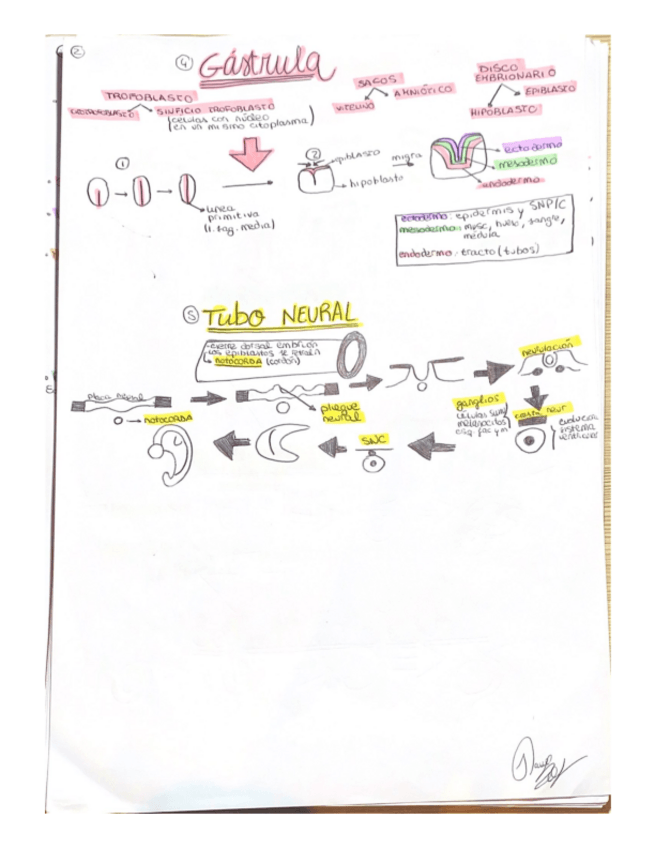 2
4 Gástrula
TROFOBLASTO
CITOTROFOBLASTO
SINFICIO TROFOBLASTO
(células con núcleo
en un mismo citoplasma)
SACOS
VITELINO
AMNIÓTICO
DISCO
EMBRIONARIO
EPIBLASTO
HIPOBLASTO
1
línea
primitiva
2
epiblasto
hipoblasto
migra
ectodermo
mesodermo
endodermo
ectodermo: epidermis y SNP/C
mesodermo: musc, hueso, sangre,
médula
endodermo: tracto (tubos)
5 Tubo NEURAL
NOTOCORDA (cordón)
placa neural
NOTOCORDA
pliegue
neural
neurulación
ganglios
células
melanocitos
cresta neur
sistema
SNC